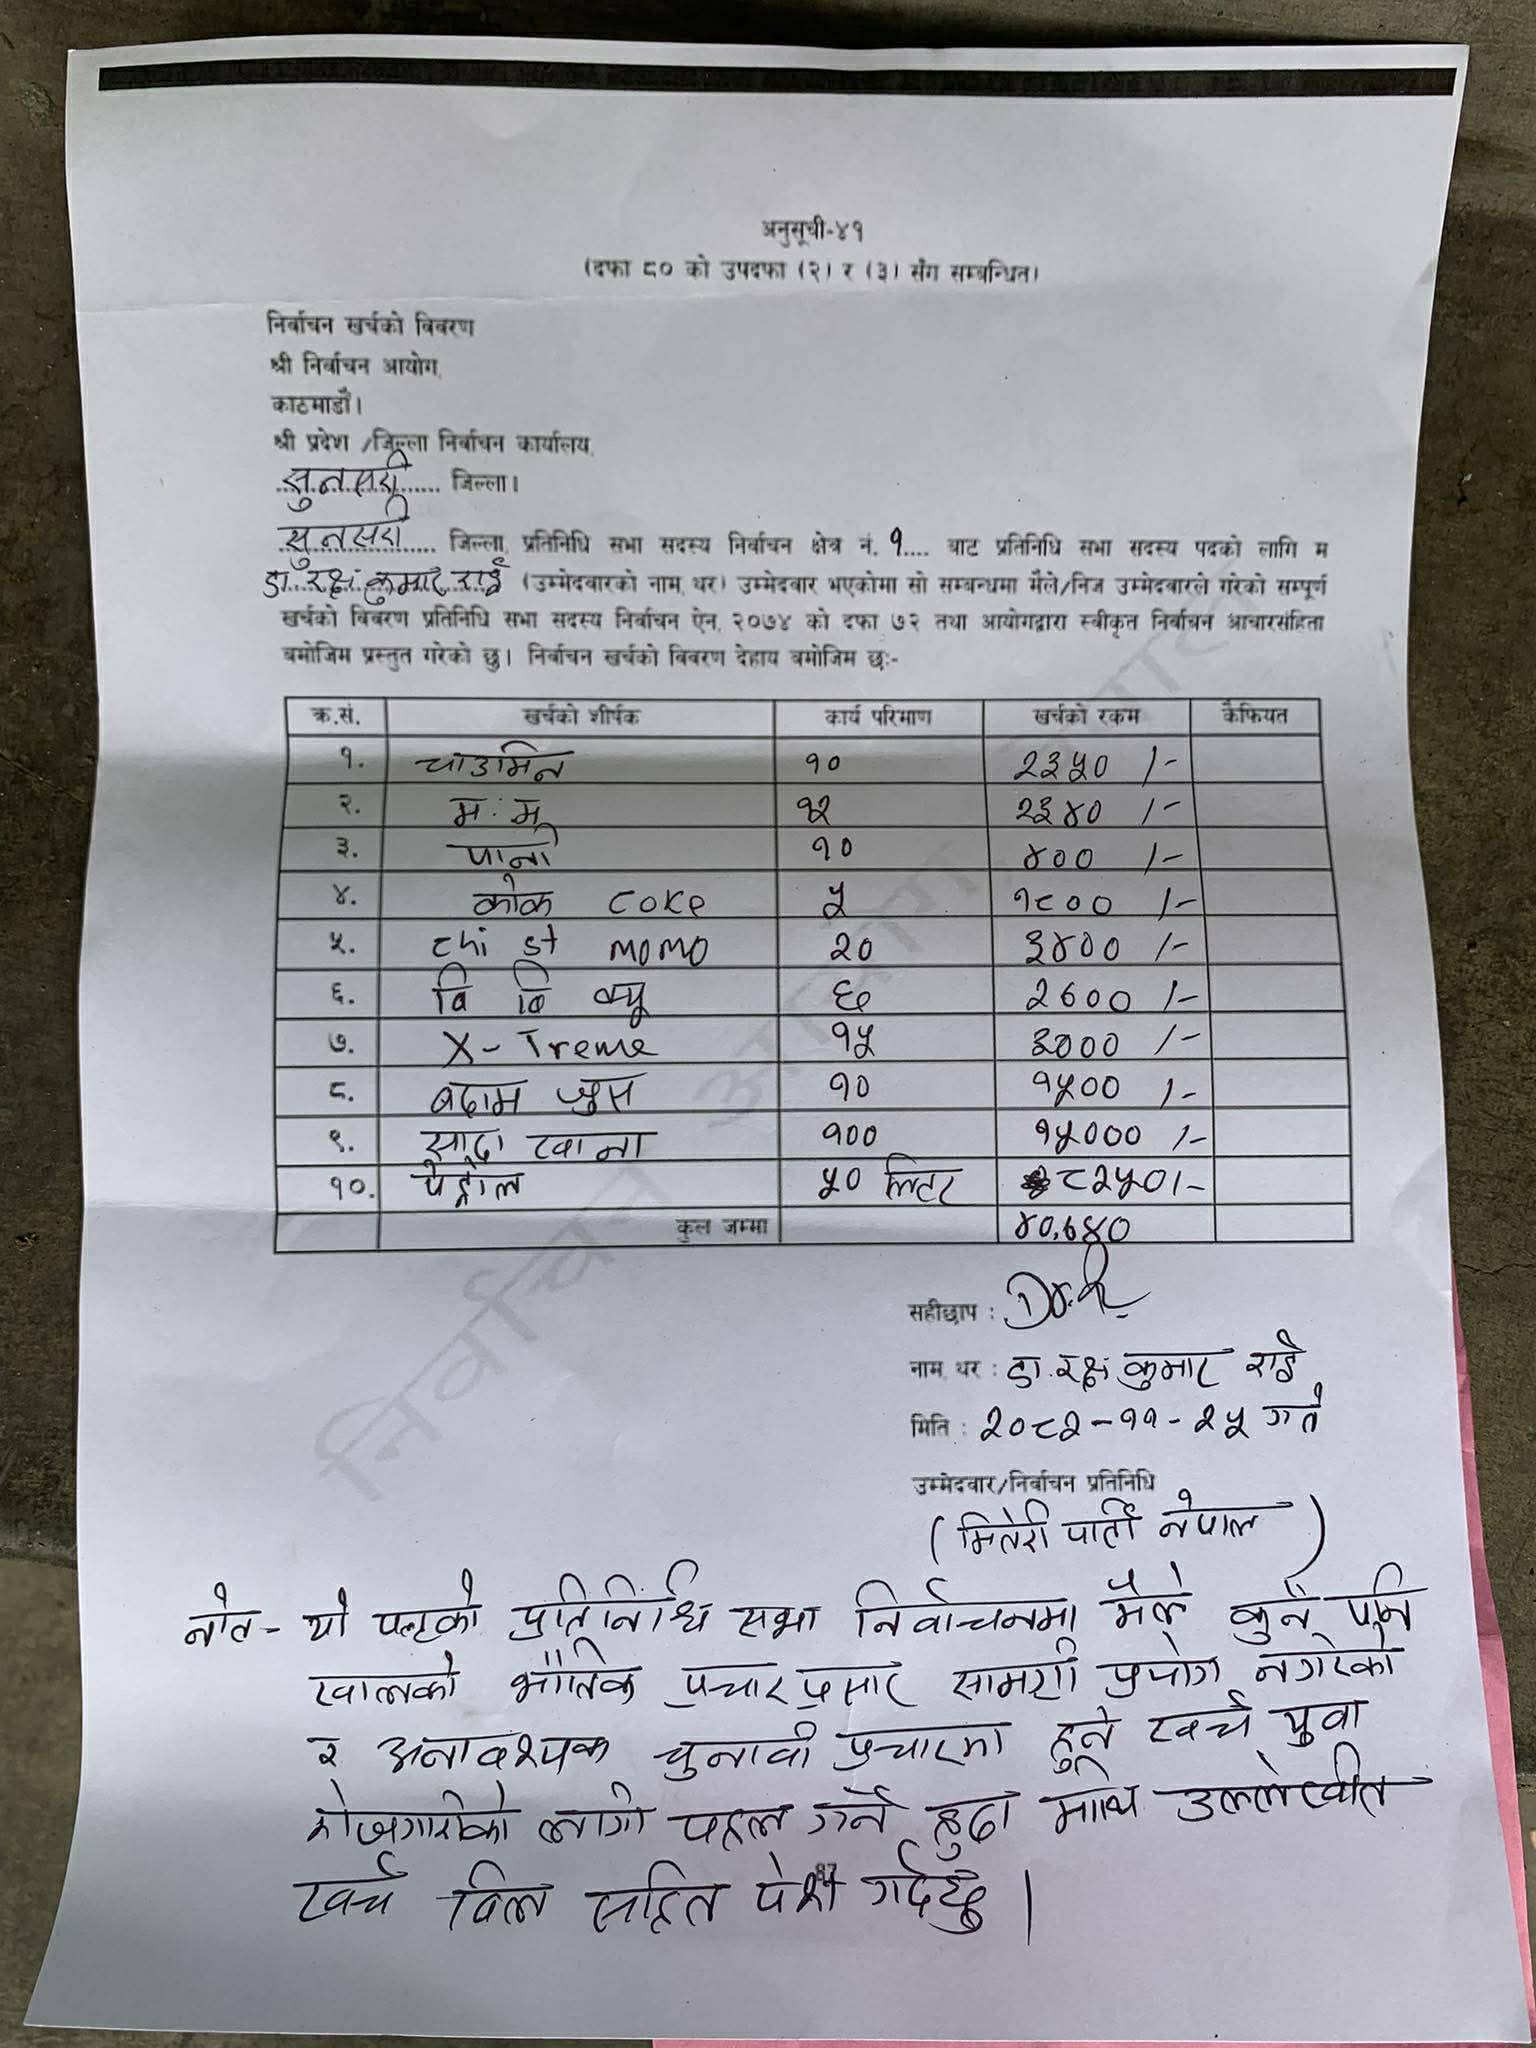 अनुसूची-४१
(दफा ८० को उपदफा (२) र (३) सँग सम्बन्धित)
निर्वाचन खर्चको विवरण
श्री निर्वाचन आयोग,
काठमाडौं।
श्री प्रदेश /जिल्ला निर्वाचन कार्यालय,
सुनसरी जिल्ला।
सुनसरी जिल्ला, प्रतिनिधि सभा सदस्य निर्वाचन क्षेत्र नं. १.... बाट प्रतिनिधि सभा सदस्य पदको लागि म
डा. रक्ष कुमार राई (उम्मेदवारको नाम, थर) उम्मेदवार भएकोमा सो सम्बन्धमा मैले/निज उम्मेदवारले गरेको सम्पूर्ण
खर्चको विवरण प्रतिनिधि सभा सदस्य निर्वाचन ऐन, २०७४ को दफा ७२ तथा आयोगद्वारा स्वीकृत निर्वाचन आचारसंहिता
बमोजिम प्रस्तुत गरेको छु। निर्वाचन खर्चको विवरण देहाय बमोजिम छः-
क्र.सं. खर्चको शीर्षक कार्य परिमाण खर्चको रकम कैफियत
१. चाउमिन १० २३५० /-
२. म:म १२ २३४० /-
३. पानी १० ४०० /-
४. कोक coke ५ १८०० /-
५. chi st momo २० ३४०० /-
६. बि बि क्यू ६ २७०० /-
७. X-Treme १५ ३००० /-
८. बदाम जुस १० १५०० /-
९. सादा खाना १०० १५००० /-
१०. पेट्रोल ५० लिटर ८२५० /-
कुल जम्मा ४०,७४०
सहीछाप :
नाम, थर : डा. रक्ष कुमार राई
मिति : २०८२-११-२५ गते
उम्मेदवार/निर्वाचन प्रतिनिधि
(मितेरी पार्टी नेपाल)
नोट- यो पटकको प्रतिनिधि सभा निर्वाचनमा मैले कुनै पनि
खालको भौतिक प्रचार प्रसार सामग्री प्रयोग नगरेको
र अनावश्यक चुनावी प्रचारमा हुने खर्च युवा
रोजगारीको लागी पहल गर्ने हुदा माथि उल्लेखीत
खर्च विल सहित पेश गर्दछु।
87
निर्वाचन आयोग, नेपाल